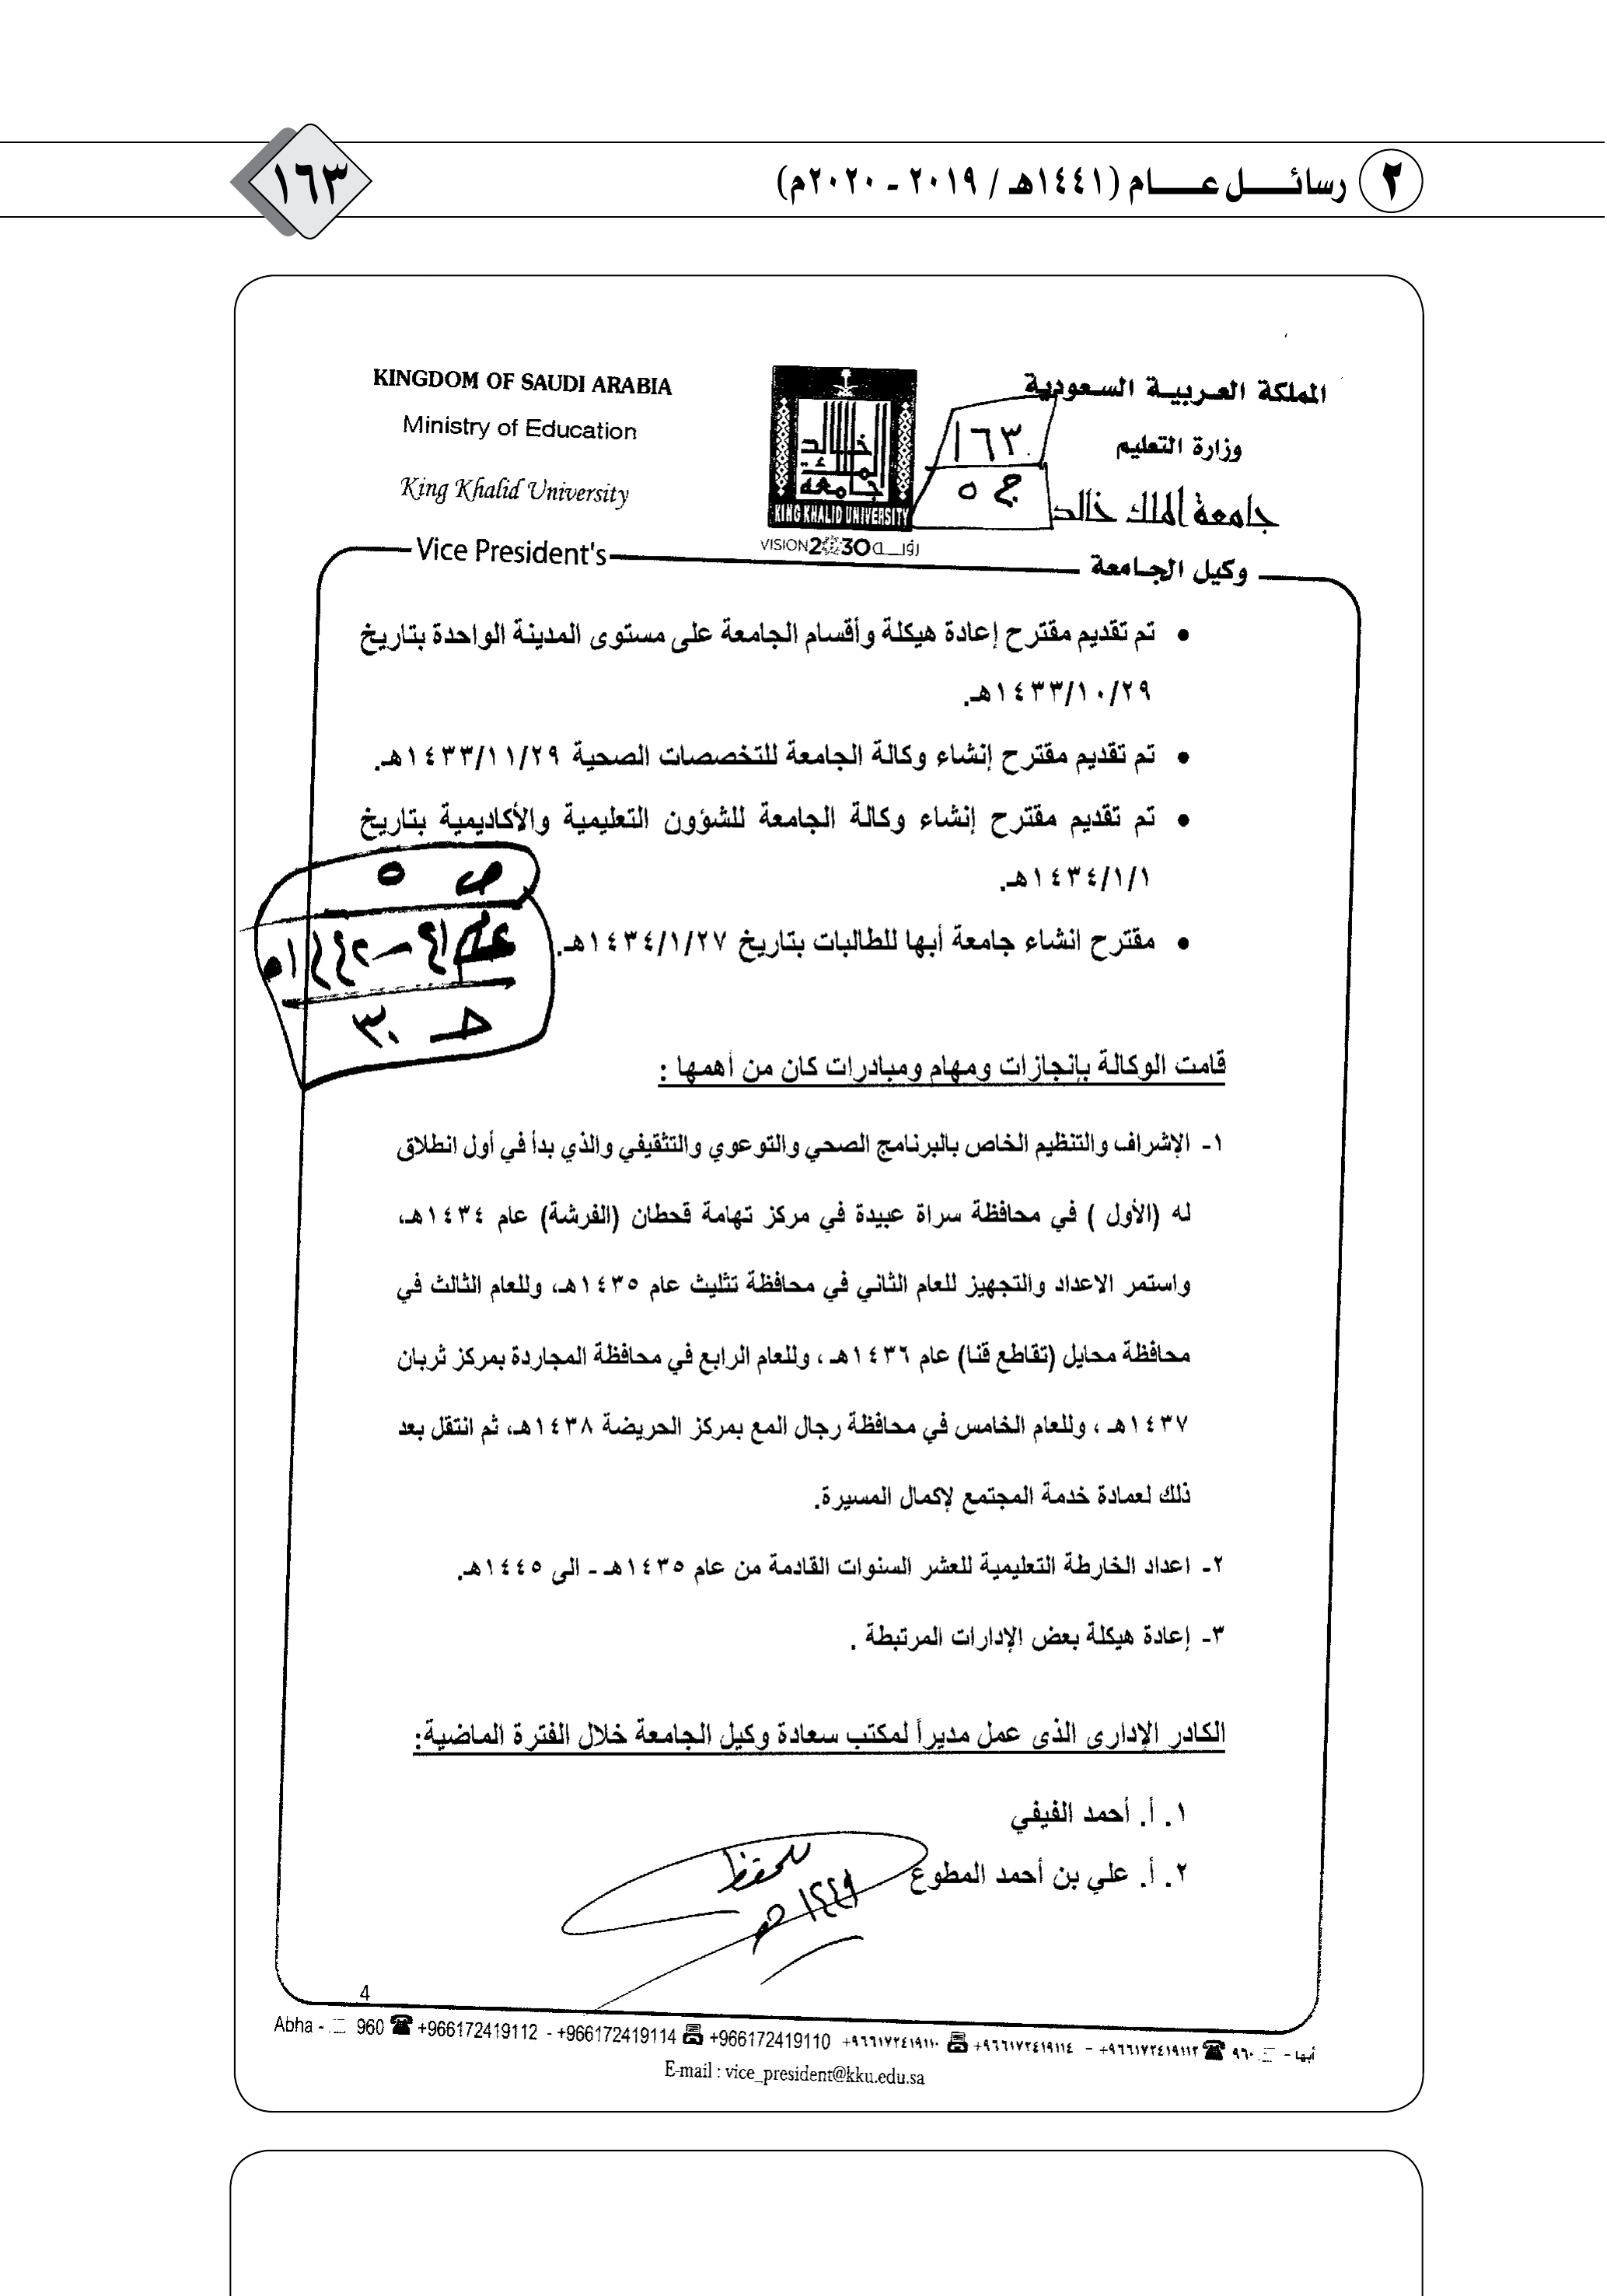 ٢ رسائل عام (١٤٤١هـ / ٢٠١٩ - ٢٠٢٠م)
١٦٣
المملكة العربية السعودية
وزارة التعليم
جامعة الملك خالد
وكيل الجامعة
KINGDOM OF SAUDI ARABIA
Ministry of Education
King Khalid University
Vice President's
جامعة الملك خالد
KING KHALID UNIVERSITY
VISION 2030 رؤية
١٦٣
ج ٥
• تم تقديم مقترح إعادة هيكلة وأقسام الجامعة على مستوى المدينة الواحدة بتاريخ
١٤٣٣/١٠/٢٩هـ.
• تم تقديم مقترح إنشاء وكالة الجامعة للتخصصات الصحية ١٤٣٣/١١/٢٩هـ.
• تم تقديم مقترح إنشاء وكالة الجامعة للشؤون التعليمية والأكاديمية بتاريخ
١٤٣٤/١/١هـ.
• مقترح انشاء جامعة أبها للطالبات بتاريخ ١٤٣٤/١/٢٧هـ.
ص ٥
قامت الوكالة بإنجازات ومهام ومبادرات كان من أهمها :
١- الإشراف والتنظيم الخاص بالبرنامج الصحي والتوعوي والتثقيفي والذي بدأ في أول انطلاق
له (الأول ) في محافظة سراة عبيدة في مركز تهامة قحطان (الفرشة) عام ١٤٣٤هـ،
واستمر الاعداد والتجهيز للعام الثاني في محافظة تثليث عام ١٤٣٥هـ، وللعام الثالث في
محافظة محايل (تقاطع قنا) عام ١٤٣٦هـ ، وللعام الرابع في محافظة المجاردة بمركز ثربان
١٤٣٧هـ ، وللعام الخامس في محافظة رجال المع بمركز الحريضة ١٤٣٨هـ، ثم انتقل بعد
ذلك لعمادة خدمة المجتمع لإكمال المسيرة.
٢- اعداد الخارطة التعليمية للعشر السنوات القادمة من عام ١٤٣٥هـ - الى ١٤٤٥هـ.
٣- إعادة هيكلة بعض الإدارات المرتبطة .
الكادر الإدارى الذى عمل مديراً لمكتب سعادة وكيل الجامعة خلال الفترة الماضية:
١. أ. أحمد الفيفي
٢. أ. علي بن أحمد المطوع
للحفظ
4
Abha - 960 ☎ +966172419112 - +966172419114 +966172419110 +٩٦٦١٧٢٤١٩١١٠ +٩٦٦١٧٢٤١٩١١٤ - +٩٦٦١٧٢٤١٩١١٢ ☎ ٩٦٠ - أبها
E-mail : vice_president@kku.edu.sa